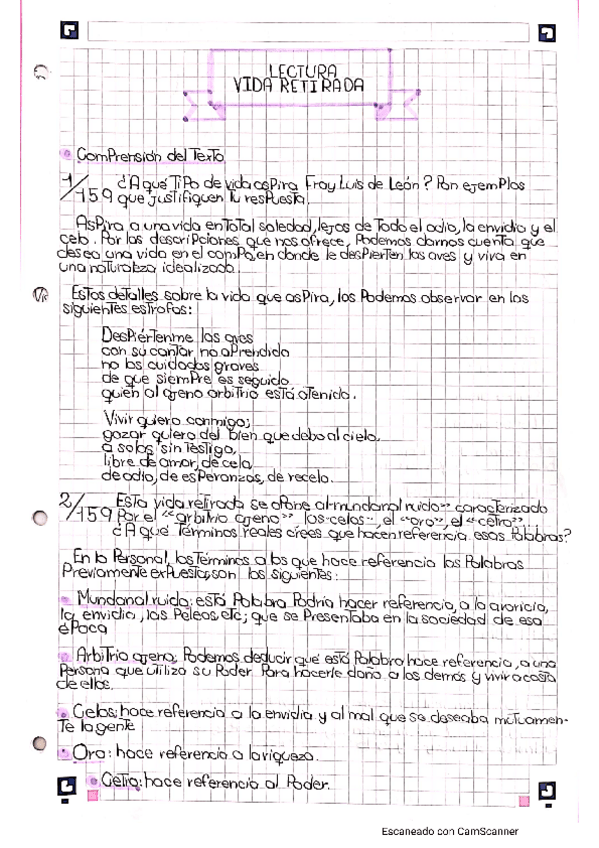 LECTURA
VIDA RETIRADA
Comprensión del Texto
1/159 ¿A qué Tipo de vida aspira Fray Luis de León? Pon ejemplos
que justifiquen tu respuesta.
Aspira a una vida en total soledad, lejos de todo el odio, la envidia y el
celo. Por las descripciones que nos ofrece, Podemos darnos cuenta que
desea una vida en el campo, en donde le despierten las aves y viva en
una naturaleza idealizada.
Estos detalles sobre la vida que aspira, los Podemos observar en las
siguientes estrofas:
Despiértenme las aves
con su cantar no aprendido
no los cuidados graves
de que siempre es seguido
quien al ajeno arbitrio está atenido.
Vivir quiero conmigo;
gozar quiero del bien que debo al cielo,
a solas sin testigo,
libre de amor, de celo,
de odio, de esperanzas, de recelo.
2/159 Esta vida retirada se opone al "mundanal ruido" caracterizado
Por el "arbitrio ajeno", los "celos", el "oro", el "cetro".
¿A qué Términos reales crees que hacen referencia esas Palabras?
En lo Personal, los Términos a los que hace referencia las Palabras
Previamente expuestas, son los siguientes:
Mundanal ruido: está Palabra Podría hacer referencia, a la avaricia,
la envidia, las Peleas, etc; que se Presentaba en la sociedad de esa
época
Arbitrio ajeno: Podemos deducir que está Palabra hace referencia, a una
Persona que utiliza su Poder Para hacerle daño a los demás y vivir a costa
de ellos.
Celos: hace referencia a la envidia y al mal que se deseaba mutuamen-
te la gente
Oro: hace referencia a la riqueza.
Cetro: hace referencia al Poder.
Escaneado con CamScanner